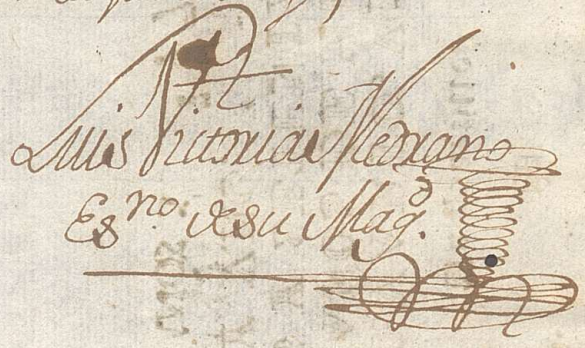 Luis Victoria Medrano
Es.no de su Mag.d